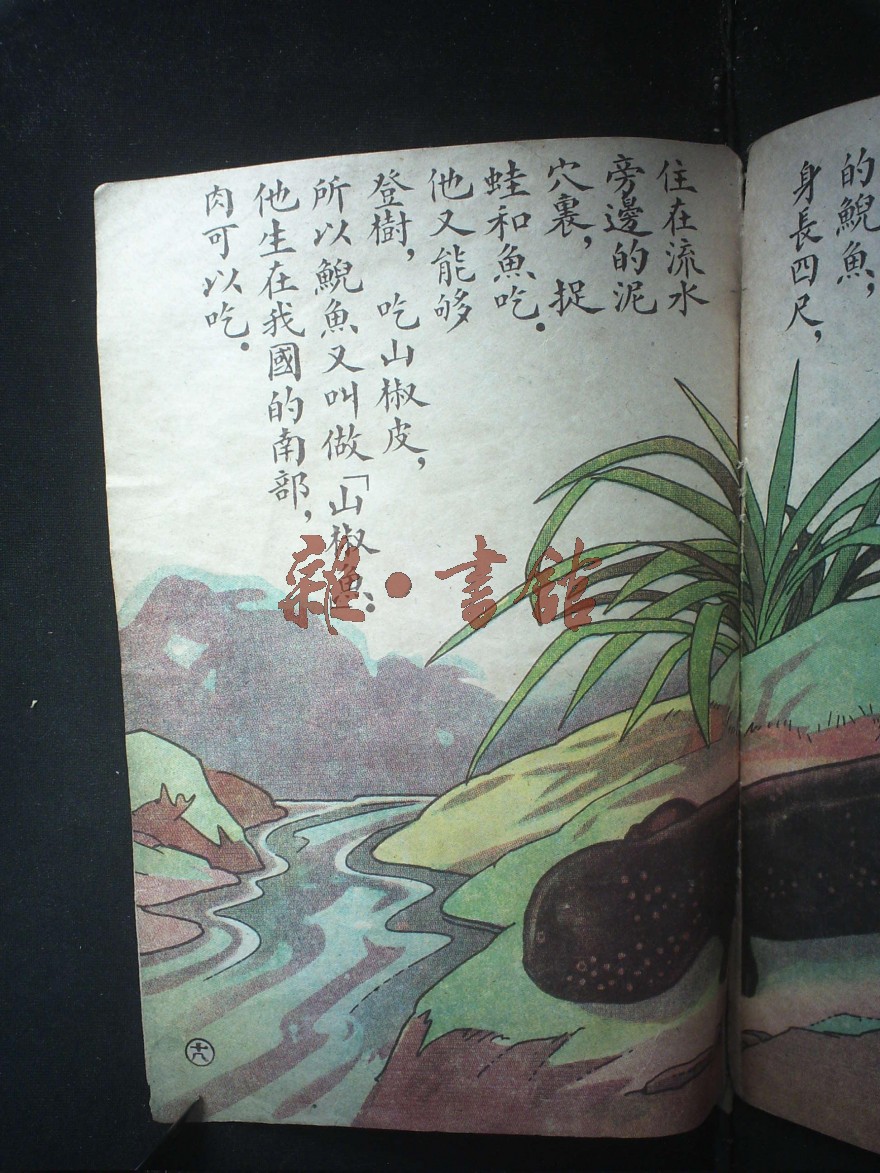 的鯢魚，
身長四尺，
住在流水
旁邊的泥
穴裏，捉
蛙和魚吃。
他又能够
登樹，吃山椒皮，
所以鯢魚又叫做「山椒魚。
他生在我國的南部，
肉可以吃。
雜·書館
十八